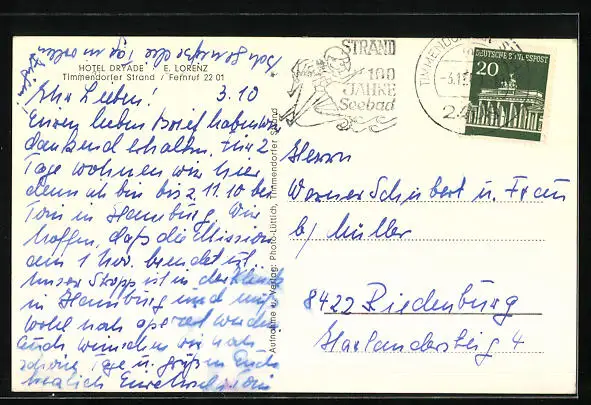 Schon
HOTEL DRYADE / E. LORENZ
Timmendorfer Strand / Fernruf 22 01
Ihr Lieben! 3.10
Euren lieben Brief haben wir
dankend erhalten. Für 2
Tage wohnen wir hier,
denn ich bin bis z. 11.10 bei
Toni in Hamburg. Wir
hoffen, daß die Mission
am 1 Nov. beendet ist.
Unser Stopp ist in der Klinik
in Hamburg und muß
wohl noch operiert werden
Euch wünschen wir noch
schöne Tage u. grüßen Euch
herzlich Eure
Aufnahme u. Verlag: Photo-Lüttich, Timmendorfer Strand
STRAND
100
JAHRE
Seebad
TIMMENDORFER
24
DEUTSCHE BUNDESPOST
20
Herrn
Werner Schubert u. Frau
b/ Müller
8422 Riedenburg
Haslandersteig 4